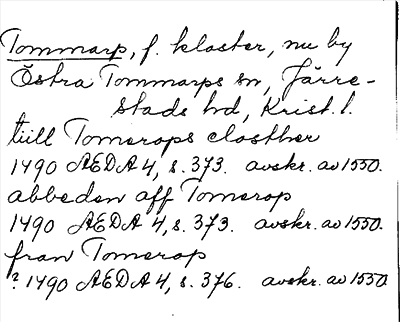 Tommarp, f. kloster, nu by
Östra Tommarps sn, Järre-
stads hd, Krist. l.
tiill Tomerops closther
1490 ÆDA 4, s. 373. avskr. av 1550.
abbeden aff Tomerop
1490 ÆDA 4, s. 373. avskr. av 1550.
fran Tomerop
? 1490 ÆDA 4, s. 376. avskr. av 1550